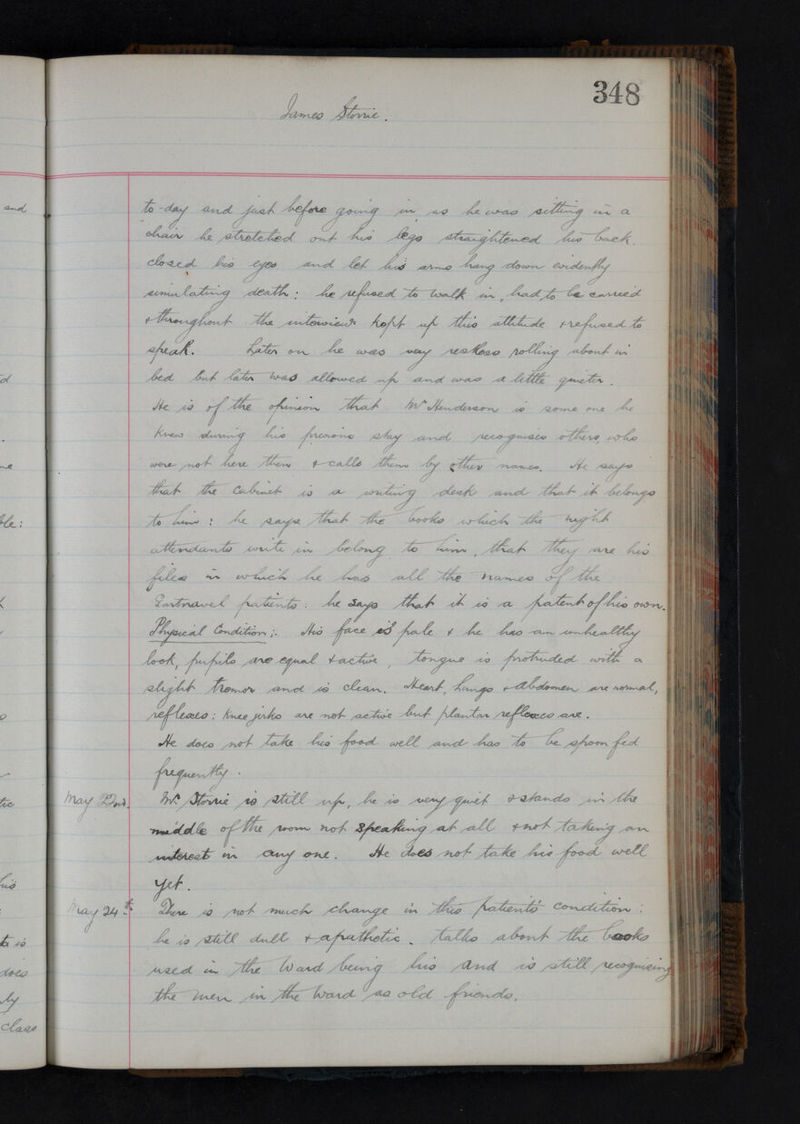 348
James Storrie.
to-day and just before going in, as he was sitting in a
chair he stretched out his legs straightened his back,
closed his eyes and let his arms hang down evidently
simulating death: he refused to walk in, had to be carried
& throughout the interview kept up this attitude & refused to
speak. Later on he was very restless rolling about in
bed but later was allowed up and was a little quieter.
He is of the opinion that Mr Henderson is some one he
knew during his previous stay and recognises others, who
were not here then & calls them by other names. He says
that the cabinet is a writing desk and that it belongs
to him: he says that the books which the night
attendants write in belong to him, that they are his
files in which he has all the names of the
Gartnavel patients: he says that it is a patent of his own.
Physical Condition:. His face is pale & he has an unhealthy
look, pupils are equal & active, tongue is protruded with a
slight tremor and is clean. Heart, lungs & abdomen are normal,
reflexes: knee jerks are not active but plantar reflexes are.
He does not take his food well and has to be spoon fed
frequently.
May 22nd. Mr. Storrie is still up, he is very quiet & stands in the
middle of the room not speaking at all & not taking an
interest in any one. He does not take his food well
yet.
May 24th There is not much change in this patient's condition:
he is still dull & apathetic. talks about the books
used in the Ward being his and is still recognising
the men in the Ward as old friends.